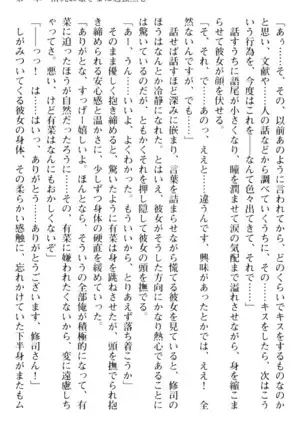 「あぅ……そ、その、以前あのように言われてから、どのくらいでキスをするものなのか
と思い、文献や人の話などから調べていくうちに、その……キスをしたら、次はこう
いう行為を、今度はこれを――なんて色々出てきて、それで……」
話すうちに語尾が小さくなり、瞳を潤ませて涙の気配まで溢れさせながら、身を縮こま
らせて彼女が顔を伏せる。
「ちっ、違うんですよ、あのっ、ええと……違うんです、興味があったとかでは、ええ！　全
然ないんですが、でも……」
話せば話すほど深みに嵌まり、言葉を詰まらせながら慌てる彼女を見ていると、修司の
ほうはなんとか冷静になれた。だが、彼女がそうした方向にかなり熱心であることに
驚きも隠せない。けれど、ともかくそれを押し隠して彼女の頭を撫でる。
「あー、うん……いいよ、よくわかった。もういいから、とりあえず落ち着こうか」
そのまま優しく抱き締めると、驚いたように有菜は身を跳ねさせたが、撫でられて抱
き締められる安心感と温かさに、少しずつ身体の硬直を緩めていった。
「あとな、その、すっげ、嬉しいよ。ほんとなら、そういうの全部俺が積極的になって、有
菜に迫ったほうが自然だっただろうに……その、有菜に嫌われたくないから、変に遠慮しち
ゃってさ。悪い、けど有菜はなんにもおかしくないぞ」
「――っっ！　は……はいっ、ありがとう……ありがとうございます、修司さん！」
しがみついてくる彼女の身体、その柔らかい感触に、忘れかけていた下半身がまたもム